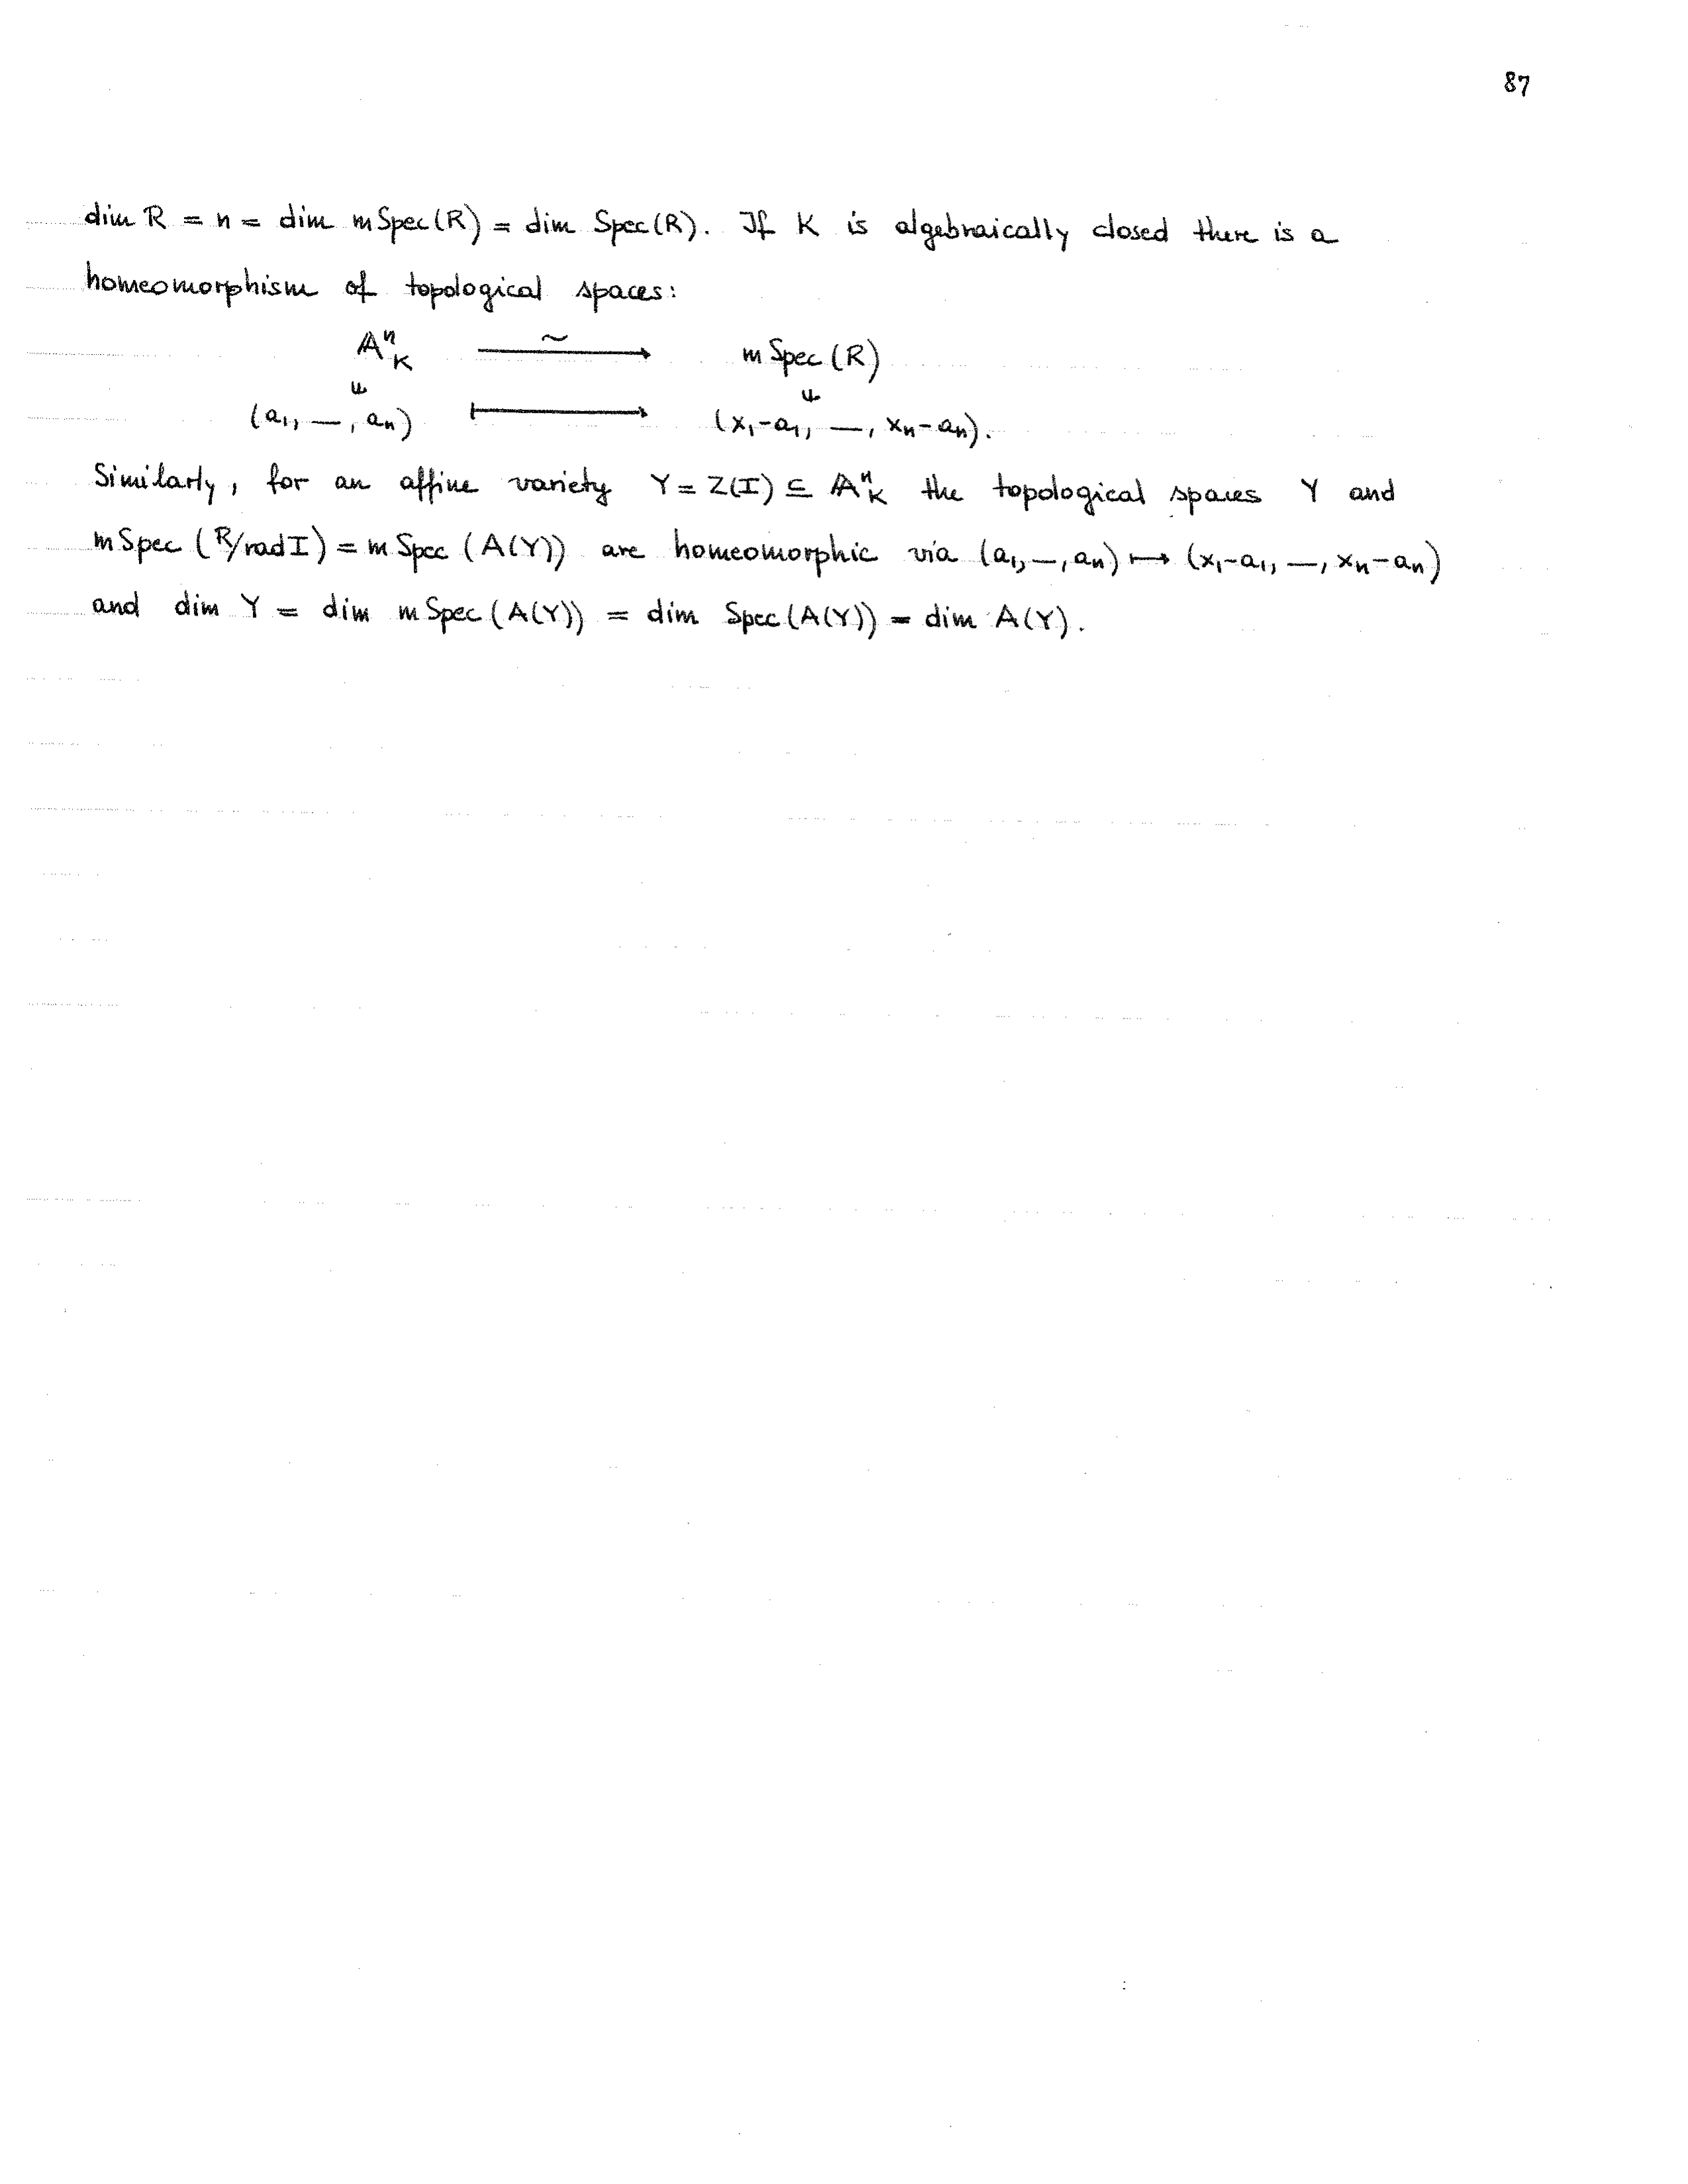 87
dim R = n = dim mSpec(R) = dim Spec(R). If K is algebraically closed there is a
homeomorphism of topological spaces:
𝔸ⁿ_K ⟶^∼ mSpec(R)
ψ ψ
(a₁, —, aₙ) ⟼ (x₁-a₁, —, xₙ-aₙ).
Similarly, for an affine variety Y = Z(I) ⊆ 𝔸ⁿ_K the topological spaces Y and
mSpec (R/rad I) = mSpec (A(Y)) are homeomorphic via (a₁, —, aₙ) ↦ (x₁-a₁, —, xₙ-aₙ)
and dim Y = dim mSpec(A(Y)) = dim Spec(A(Y)) = dim A(Y).